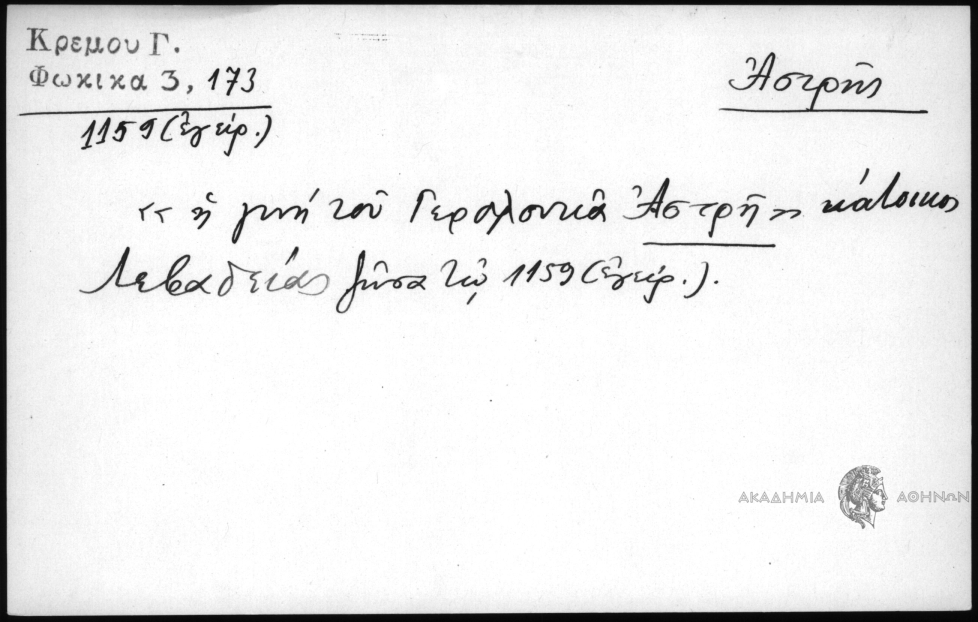 Κρεμου Γ.
Φωκικα 3, 173
Ἀστρῆς
1159 (ἐγείρ.)
«ἡ γυνή τοῦ Ἀστρῆ» κάτοικος
Λεβαδείας ζῶσα τῷ 1159 (ἐγείρ.).
ΑΚΑΔΗΜΙΑ ΑΘΗΝΩΝ